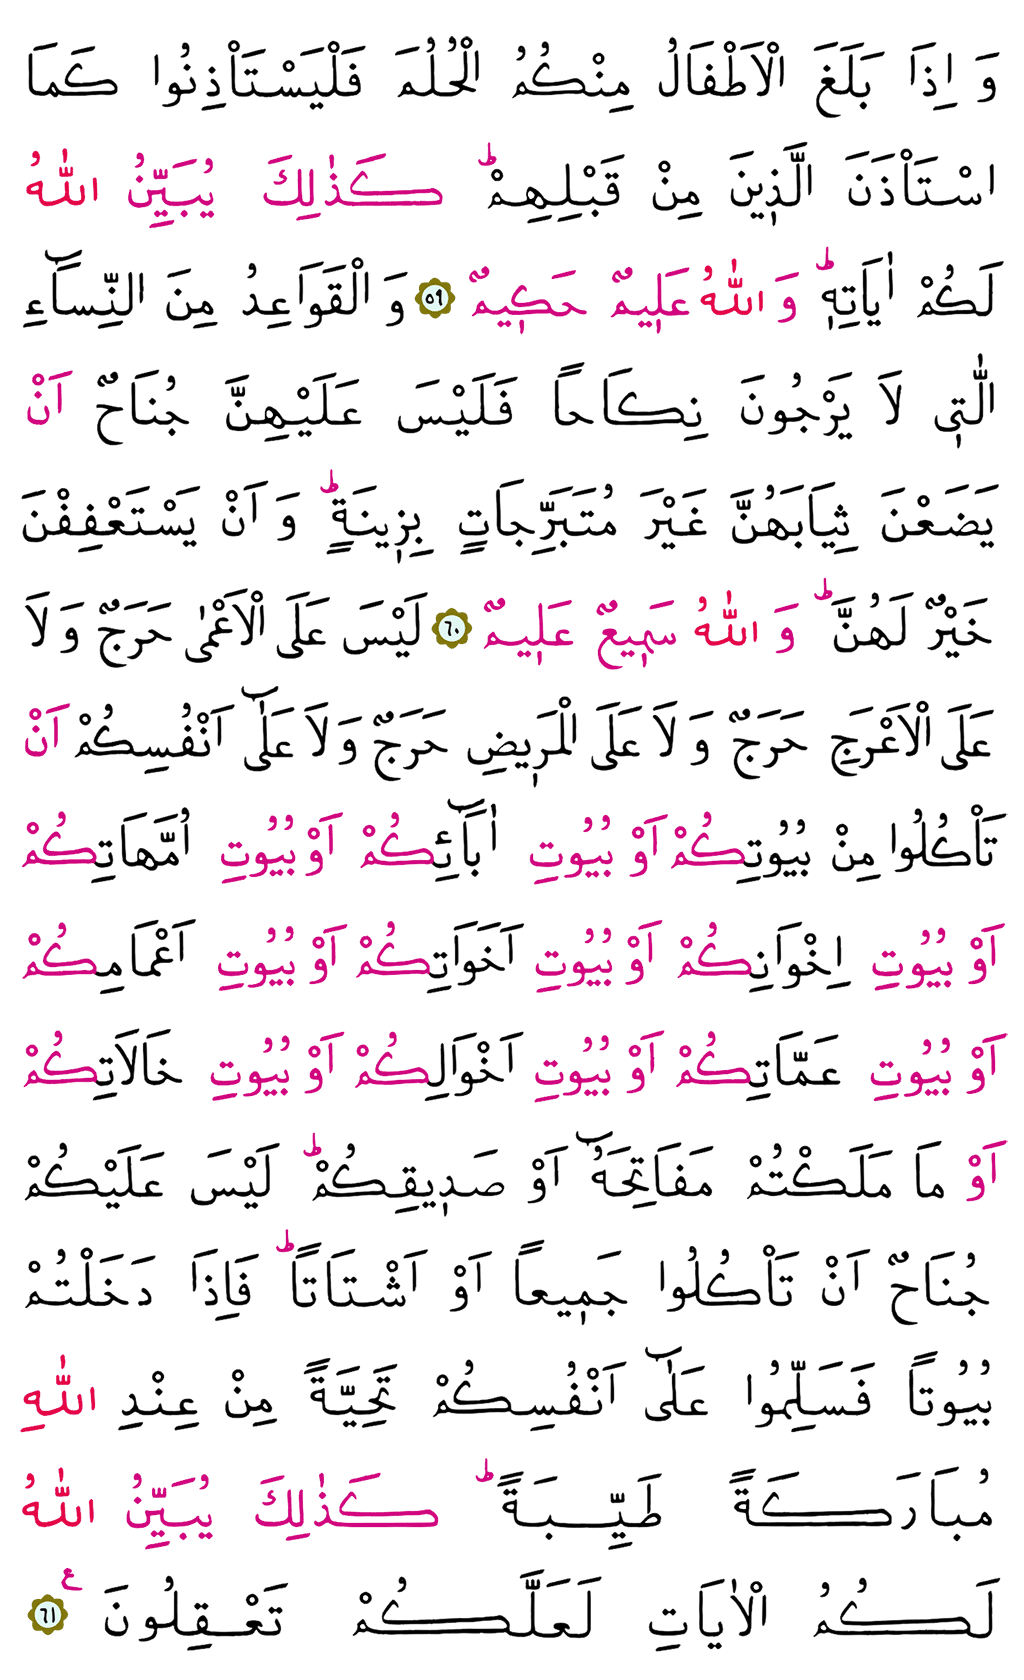 وَ اِذَا بَلَغَ الْاَطْفَالُ مِنْكُمُ الْحُلُمَ فَلْيَسْتَاْذِنُوا كَمَا
اسْتَاْذَنَ الَّذ۪ينَ مِنْ قَبْلِهِمْۜ كَذٰلِكَ يُبَيِّنُ اللّٰهُ
لَكُمْ اٰيَاتِه۪ۜ وَ اللّٰهُ عَل۪يمٌ حَك۪يمٌ ﴿٥٩﴾ وَ الْقَوَاعِدُ مِنَ النِّسَٓاءِ
الّٰت۪ي لَا يَرْجُونَ نِكَاحاً فَلَيْسَ عَلَيْهِنَّ جُنَاحٌ اَنْ
يَضَعْنَ ثِيَابَهُنَّ غَيْرَ مُتَبَرِّجَاتٍ بِز۪ينَةٍۜ وَ اَنْ يَسْتَعْفِفْنَ
خَيْرٌ لَهُنَّۜ وَ اللّٰهُ سَم۪يعٌ عَل۪يمٌ ﴿٦٠﴾ لَيْسَ عَلَى الْاَعْمٰى حَرَجٌ وَ لَا
عَلَى الْاَعْرَجِ حَرَجٌ وَ لَا عَلَى الْمَر۪يضِ حَرَجٌ وَ لَا عَلٰٓى اَنْفُسِكُمْ اَنْ
تَاْكُلُوا مِنْ بُيُوتِكُمْ اَوْ بُيُوتِ اٰبَٓائِكُمْ اَوْ بُيُوتِ اُمَّهَاتِكُمْ
اَوْ بُيُوتِ اِخْوَانِكُمْ اَوْ بُيُوتِ اَخَوَاتِكُمْ اَوْ بُيُوتِ اَعْمَامِكُمْ
اَوْ بُيُوتِ عَمَّاتِكُمْ اَوْ بُيُوتِ اَخْوَالِكُمْ اَوْ بُيُوتِ خَالَاتِكُمْ
اَوْ مَا مَلَكْتُمْ مَفَاتِحَهُٓ اَوْ صَد۪يقِكُمْۜ لَيْسَ عَلَيْكُمْ
جُنَاحٌ اَنْ تَاْكُلُوا جَم۪يعاً اَوْ اَشْتَاتاًۜ فَاِذَا دَخَلْتُمْ
بُيُوتاً فَسَلِّمُوا عَلٰٓى اَنْفُسِكُمْ تَحِيَّةً مِنْ عِنْدِ اللّٰهِ
مُبَارَكَةً طَيِّبَةًۜ كَذٰلِكَ يُبَيِّنُ اللّٰهُ
لَكُمُ الْاٰيَاتِ لَعَلَّكُمْ تَعْقِلُونَ ع ﴿٦١﴾